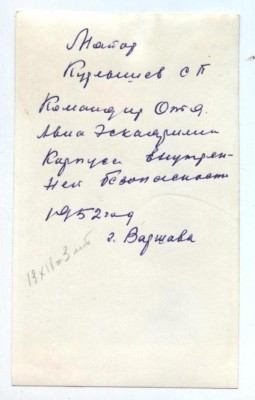 Майор
Курышев С П
Командир Отд.
Авиа Эскадрилии
Корпуса внутрен-
ней безопасности
1952 год
г. Варшава
13 x 18 = 3 шт